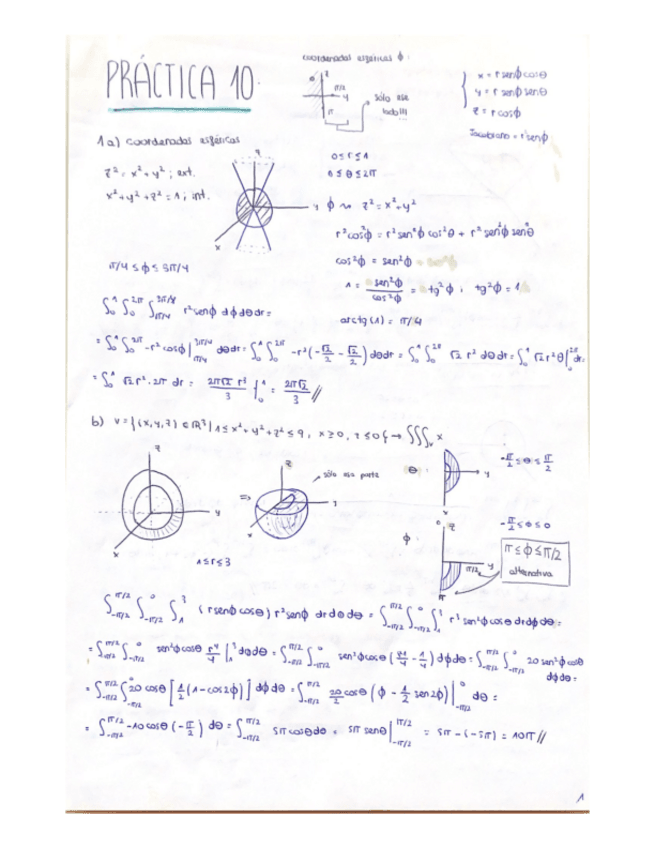 coordenadas esféricas φ:
PRÁCTICA 10.
z
π/2
y
π
sólo ese lado!!!
x = r senφ cosθ
y = r senφ senθ
z = r cosφ
Jacobiano = r²senφ
1a) coordenadas esféricas
z² = x² + y² ; ext.
x² + y² + z² = 1 ; int.
z
y
x
0 ≤ r ≤ 1
0 ≤ θ ≤ 2π
φ ~> z² = x² + y²
r²cos²φ = r²sen²φ cos²θ + r² sen²φ sen²θ
cos²φ = sen²φ
1 = sen²φ/cos²φ = tg²φ ; tg²φ = 1
arctg(1) = π/4
π/4 ≤ φ ≤ 3π/4
∫₀¹ ∫₀^2π ∫_π/4^3π/4 r²senφ dφdθdr =
= ∫₀¹ ∫₀^2π -r² cosφ |_π/4^3π/4 dθdr = ∫₀¹ ∫₀^2π -r² (-√2/2 - √2/2) dθdr = ∫₀¹ ∫₀^2π √2 r² dθdr = ∫₀¹ √2 r² θ |₀^2π dr =
= ∫₀¹ √2 r² · 2π dr = 2π√2 r³/3 |₀¹ = 2π√2/3 //
b) V = {(x,y,z) ∈ ℝ³ | 1 ≤ x² + y² + z² ≤ 9, x ≥ 0, z ≤ 0} → ∫∫∫_V x
z
y
x
⇒
z
sólo esa parte
y
x
1 ≤ r ≤ 3
θ:
y
x
-π/2 ≤ θ ≤ π/2
φ:
0
z
y
π/2
π
-π/2 ≤ φ ≤ 0
π ≤ φ ≤ π/2
alternativa
∫_-π/2^π/2 ∫_-π/2^0 ∫₁³ (r senφ cosθ) r²senφ dr dθ dθ = ∫_-π/2^π/2 ∫_-π/2^0 ∫₁³ r³ sen²φ cosθ dr dφ dθ =
= ∫_-π/2^π/2 ∫_-π/2^0 sen²φ cosθ r⁴/4 |₁³ dφdθ = ∫_-π/2^π/2 ∫_-π/2^0 sen²φ cosθ (81/4 - 1/4) dφdθ = ∫_-π/2^π/2 ∫_-π/2^0 20 sen²φ cosθ dφdθ =
= ∫_-π/2^π/2 ∫_-π/2^0 20 cosθ [1/2 (1 - cos2φ)] dφdθ = ∫_-π/2^π/2 20/2 cosθ (φ - 1/2 sen2φ) |_-π/2^0 dθ =
= ∫_-π/2^π/2 -10 cosθ (-π/2) dθ = ∫_-π/2^π/2 5π cosθ dθ = 5π senθ |_-π/2^π/2 = 5π - (-5π) = 10π //
1